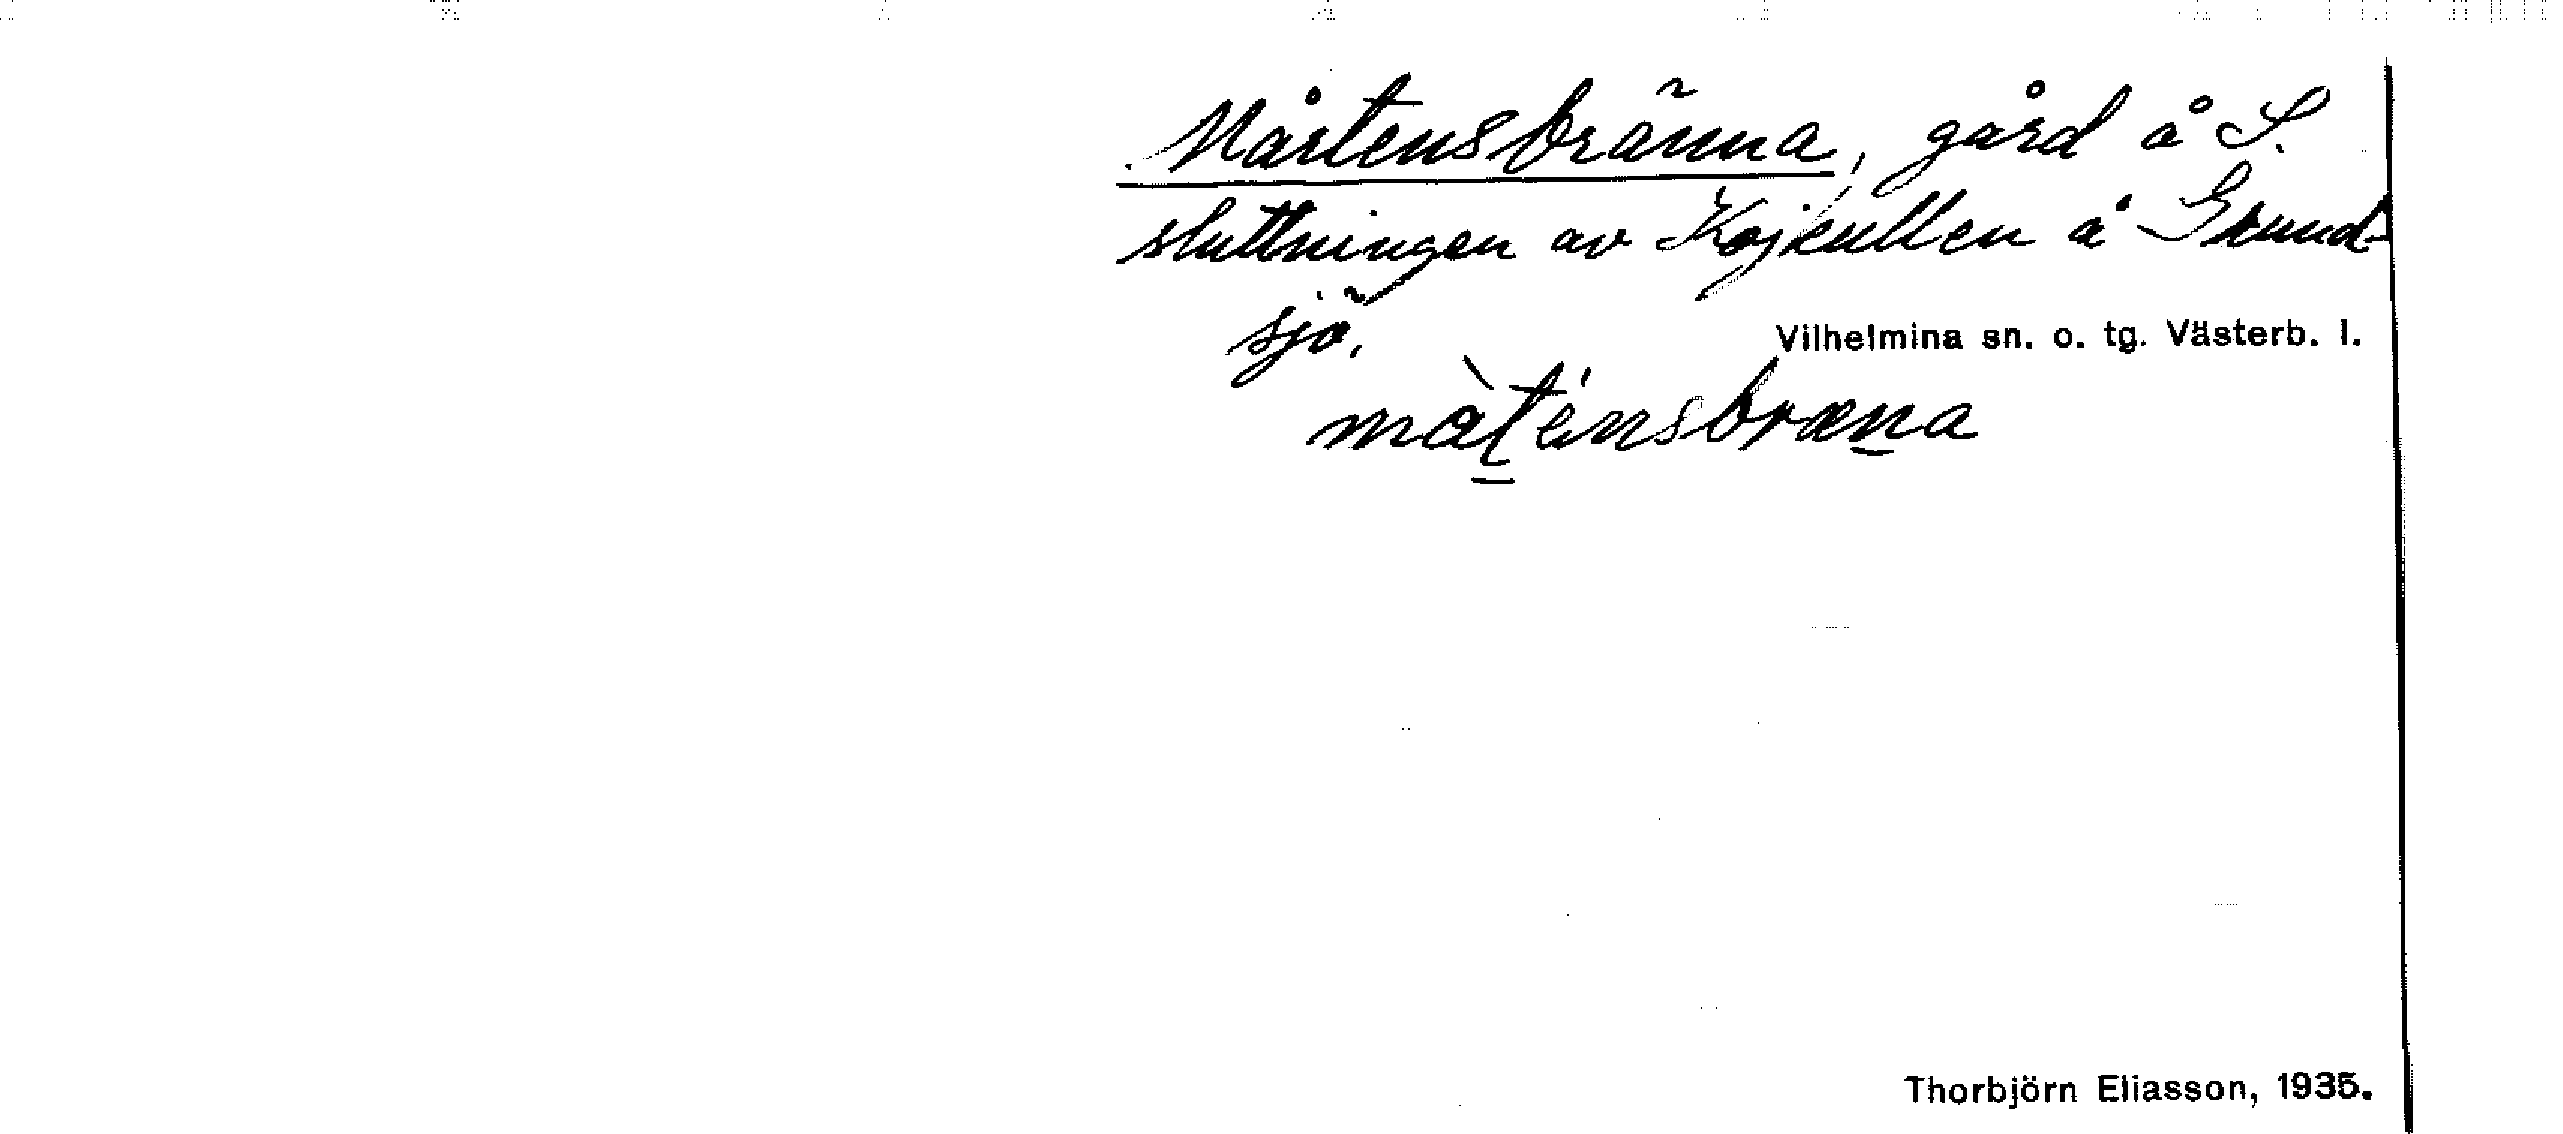 Mårtensbränna, gård å S.
sluttningen av Kojkullen å Grund-
sjö.
Vilhelmina sn. o. tg. Västerb. l.
Thorbjörn Eliasson, 1935.